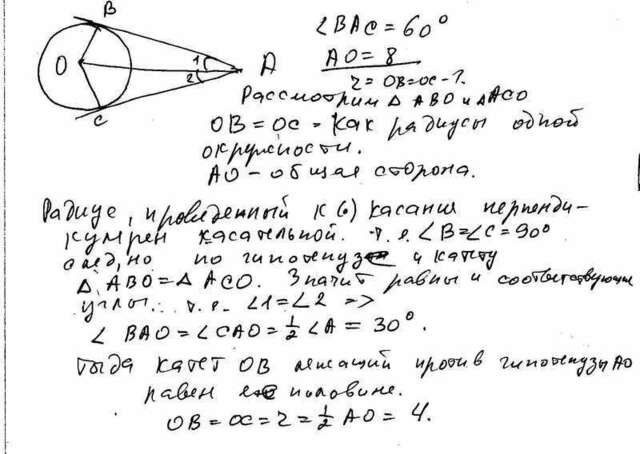 B
O
1
2
A
C
∠BAC = 60°
AO = 8
r = OB = OC - ?
Рассмотрим △ABO и △ACO
OB = OC - как радиусы одной
окружности.
AO - общая сторона.
Радиус, проведенный к (·) касания перпенди-
кулярен касательной. т.е. ∠B = ∠C = 90°
след,но по гипотенузе и катету
△ABO = △ACO. Значит равны и соответствующие
углы. т.е. ∠1 = ∠2 =>
∠BAO = ∠CAO = 1/2 ∠A = 30°.
Тогда катет OB лежащий против гипотенузы AO
равен её половине.
OB = OC = r = 1/2 AO = 4.